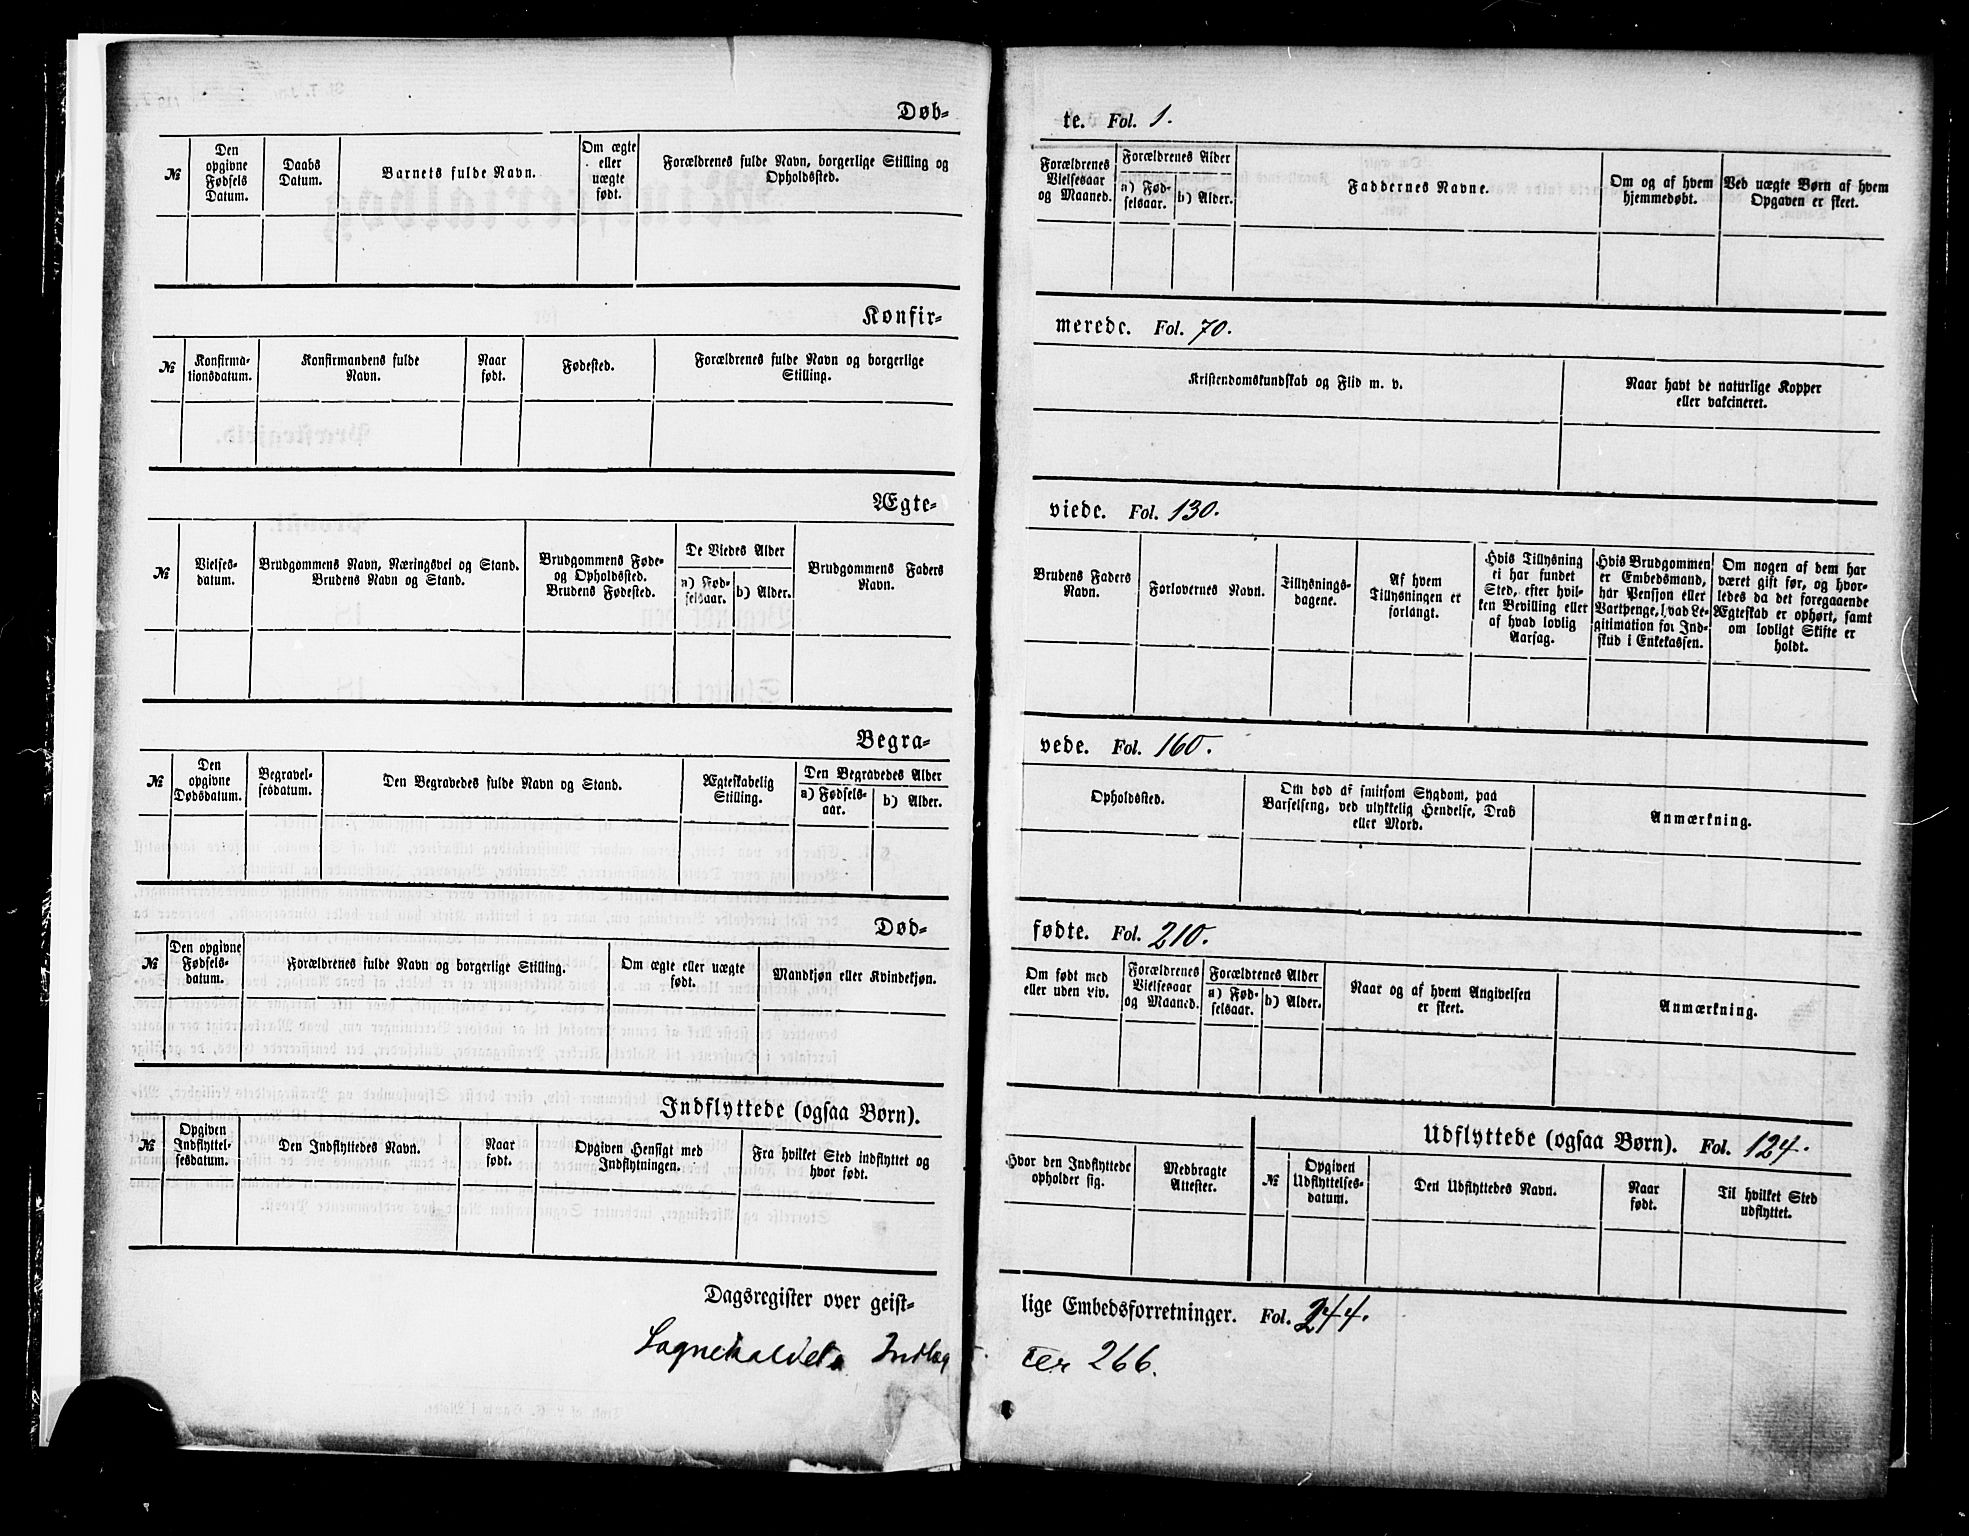 Døb-
№ Den opgivne Fødsels Datum. Daabs Datum. Barnets fulde Navn. Om ægte eller uægte født. Forældrenes fulde Navn, borgerlige Stilling og Opholdssted.
Konfir-
№ Konfirma-tionsdatum. Konfirmandens fulde Navn. Naar født. Fødested. Forældrenes fulde Navn og borgerlige Stilling.
Ægte-
№ Vielses-datum. Brudgommens Navn, Næringsvei og Stand. Brudens Navn og Stand. Brudgommens Føde- og Opholdssted. Brudens Fødested. De Viedes Alder a) Fød-selsaar. b) Alder. Brudgommens Faders Navn.
Begra-
№ Den opgivne Dødsdatum. Begravel-sesdatum. Den Begravedes fulde Navn og Stand. Ægteskabelig Stilling. Den Begravedes Alder a) Fødsels-aar. b) Alder.
Død-
№ Den opgivne Fødsels-datum. Forældrenes fulde Navn og borgerlige Stilling. Om ægte eller uægte født. Mandkjøn eller Kvindekjøn.
Indflyttede (ogsaa Børn).
№ Opgiven Indflyttel-sesdatum. Den Indflyttedes Navn. Naar født. Opgiven Hensigt med Indflytningen. Fra hvilket Sted indflyttet og hvor født.
Dagsregister over geist-
Sognekaldets Indtæg
te. Fol. 1.
Forældrenes Vielsesaar og Maaned. Forældrenes Alder a) Fød-selsaar. b) Alder. Faddernes Navne. Om og af hvem hjemmedøbt. Ved uægte Børn af hvem Opgaven er skeet.
merede. Fol. 70.
Kristendomskundskab og Flid m. v. Naar havt de naturlige Kopper eller vakcineret.
viede. Fol. 130.
Brudens Faders Navn. Forlovernes Navn. Tillysnings-dagene. Af hvem Tillysningen er forlangt. Hvis Tillysning ei har fundet Sted, efter hvil-ken Bevilling eller af hvad lovlig Aarsag. Hvis Brudgommen er Embedsmand, har Pensjon eller Vartpenge, hvad Le-gitimation for Ind-skud i Enkekassen. Om nogen af dem har været gift før, og hvor-ledes da det foregaaende Ægteskab er ophørt, samt om lovligt Skifte er holdt.
vede. Fol. 160.
Opholdssted. Om død af smitsom Sygdom, paa Barselseng, ved ulykkelig Hendelse, Drab eller Mord. Anmærkning.
fødte. Fol. 210.
Om født med eller uden Liv. Forældrenes Vielsesaar og Maaned. Forældrenes Alder a) Fød-selsaar. b) Alder. Naar og af hvem Angivelsen er skeet. Anmærkning.
Udflyttede (ogsaa Børn). Fol. 124.
Hvor den Indflyttede opholder sig. Medbragte Attester. № Opgiven Udflyttelses-datum. Den Udflyttedes Navn. Naar født. Til hvilket Sted udflyttet.
lige Embedsforretninger. Fol. 244.
ter 266.